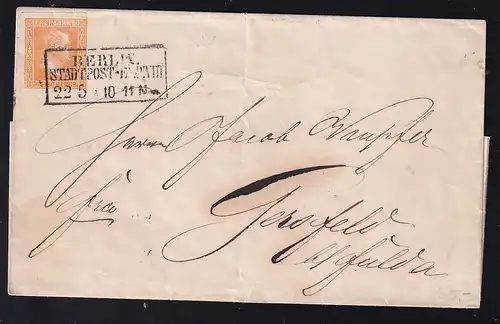 FREIMARKE
BERLIN.
STADTPOST-EXP. VIII
22 5 10-11 N
Herrn Jacob
frco
Gersfeld
b/ Fulda